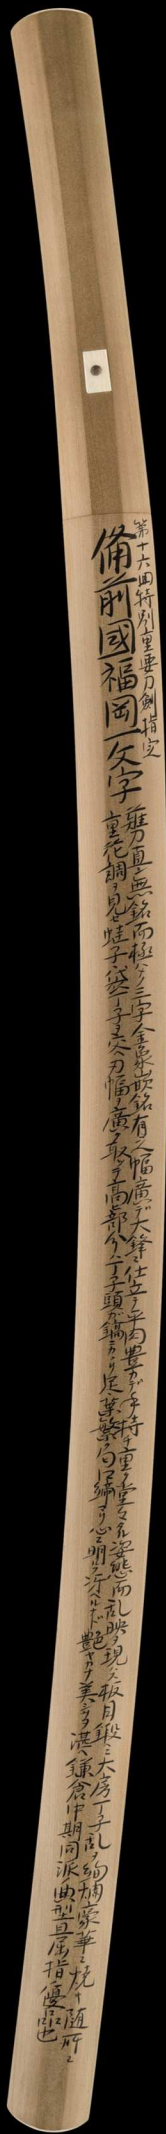 第十六回特別重要刀剣指定
備前國福岡一文字
薙刀直シ無銘而極メノ三字金象嵌銘有之幅廣デ大鋒ニ仕立ラレ平肉豊カデ手持チ重ク堂々タル姿態而乱映リ現ハル板目鍛ニ大房丁子乱ヲ絢爛豪華ニ焼キ随所ニ
重花調ヲ見セ蛙子袋丁子ヲ交ヘ刃幅ヲ廣ク取ツテ高部分ハ丁子頭ガ鎬ニカヽリ足葉繁ク匂口締リ心ニ明ルク冴ヘルナド艶ヤカナ美ニ満ツ鎌倉中期同派ノ典型且屈指ノ優品也